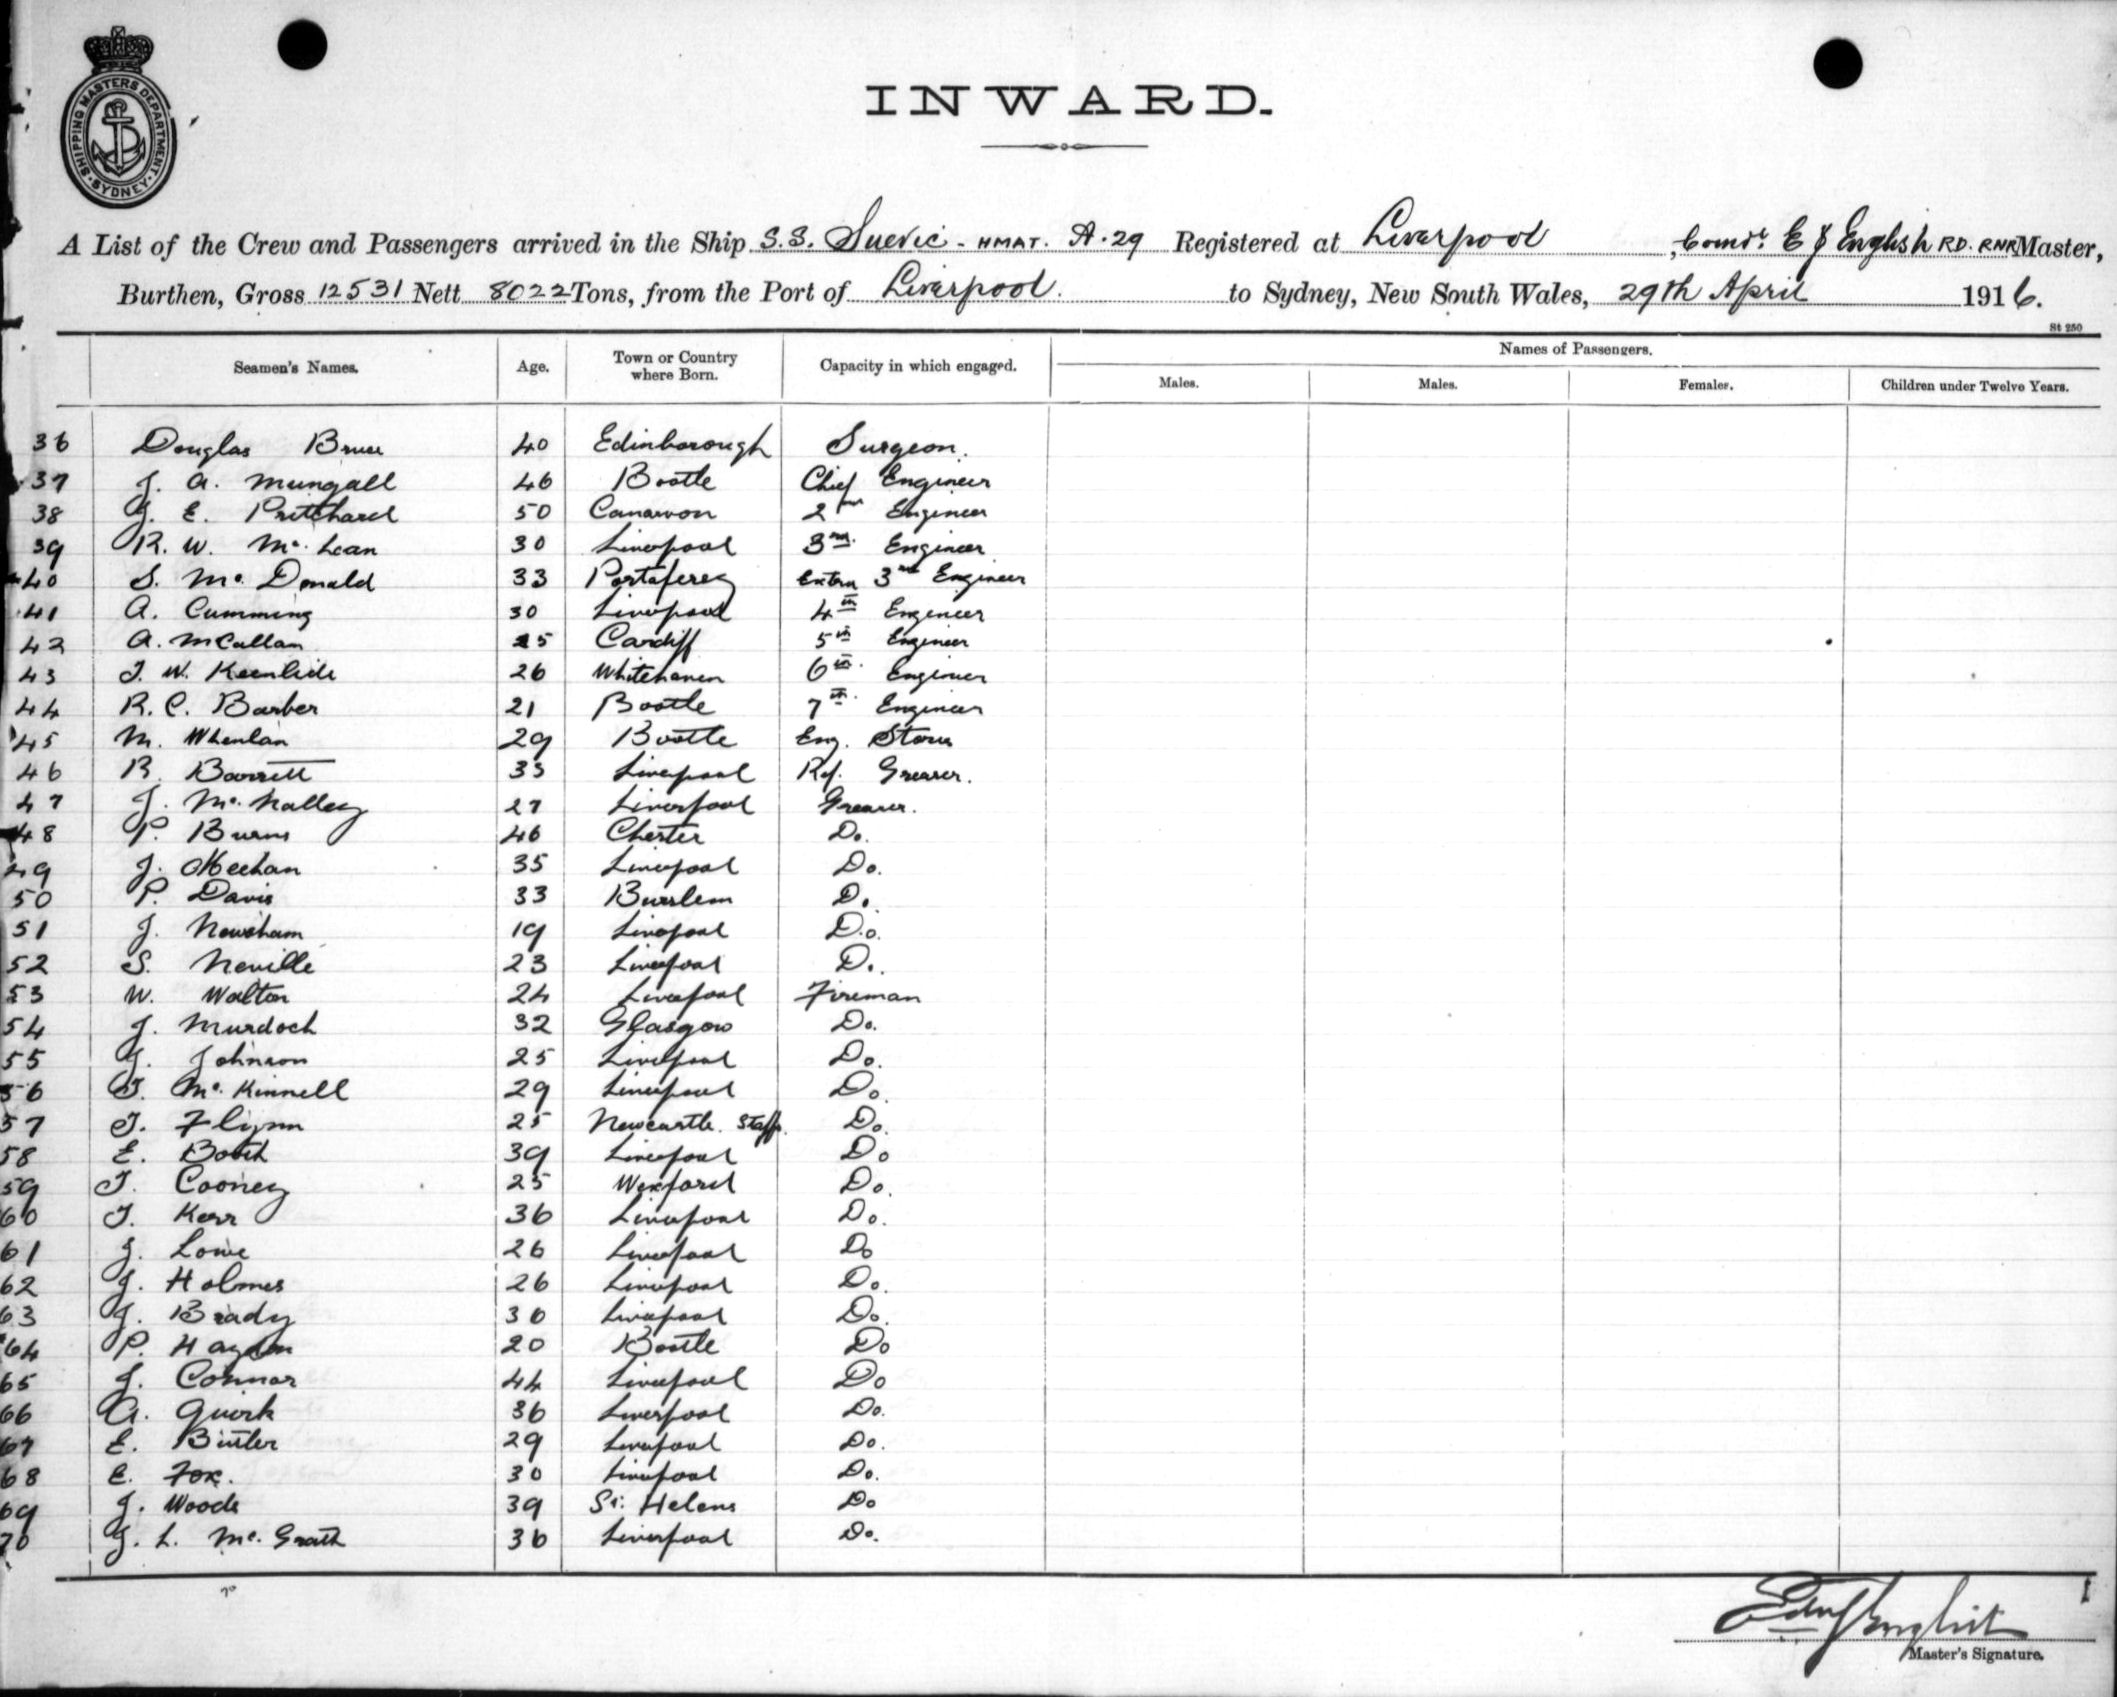 SHIPPING MASTERS DEPARTMENT · SYDNEY ·
INWARD.
A List of the Crew and Passengers arrived in the Ship S.S. Suevic - HMAT. A.29 Registered at Liverpool, Comdr. E J English RD. RNR Master,
Burthen, Gross 12531 Nett 8022 Tons, from the Port of Liverpool. to Sydney, New South Wales, 29th April 1916.
St 250
Seamen's Names. Age. Town or Country where Born. Capacity in which engaged. Names of Passengers.
Males. Males. Females. Children under Twelve Years.
36 Douglas Bruce 40 Edinborough Surgeon.
37 J. A. Mungall 46 Bootle Chief Engineer
38 J. E. Pritchard 50 Canarvon 2nd Engineer
39 R. W. Mc. Lean 30 Liverpool 3rd. Engineer
40 S. Mc. Donald 33 Portaferey Extra 3rd Engineer
41 A. Cumming 30 Liverpool 4th Engineer
42 A. McCallan 25 Cardiff 5th Engineer
43 J. W. Keenlide 26 Whitehaven 6th. Engineer
44 R. C. Barber 21 Bootle 7th. Engineer
45 M. Whenlan 29 Bootle Eng. Stores
46 R. Barrett 33 Liverpool Ref. Greaser.
47 J. Mc. Nalley 27 Liverpool Greaser.
48 P. Burns 46 Chester Do.
49 J. Meehan 35 Liverpool Do.
50 P. Davis 33 Burslem Do.
51 J. Newsham 19 Liverpool Do.
52 S. Neville 23 Liverpool Do.
53 W. Walton 24 Liverpool Fireman
54 J. Murdoch 32 Glasgow Do.
55 J. Johnson 25 Liverpool Do.
56 T. Mc. Kinnell 29 Liverpool Do.
57 T. Flynn 25 Newcastle. Staffs. Do.
58 E. Booth 39 Liverpool Do
59 T. Cooney 25 Wexford Do.
60 T. Kerr 36 Liverpool Do.
61 J. Lowe 26 Liverpool Do
62 J. Holmes 26 Liverpool Do.
63 J. Brady 30 Liverpool Do.
64 P. Hayden 20 Bootle Do
65 J. Connor 44 Liverpool Do
66 A. Quirk 36 Liverpool Do.
67 E. Butler 29 Liverpool Do.
68 E. Fox. 30 Liverpool Do.
69 J. Woods 39 St. Helens Do
70 J. L. Mc. Grath 36 Liverpool Do.
70
Master's Signature.